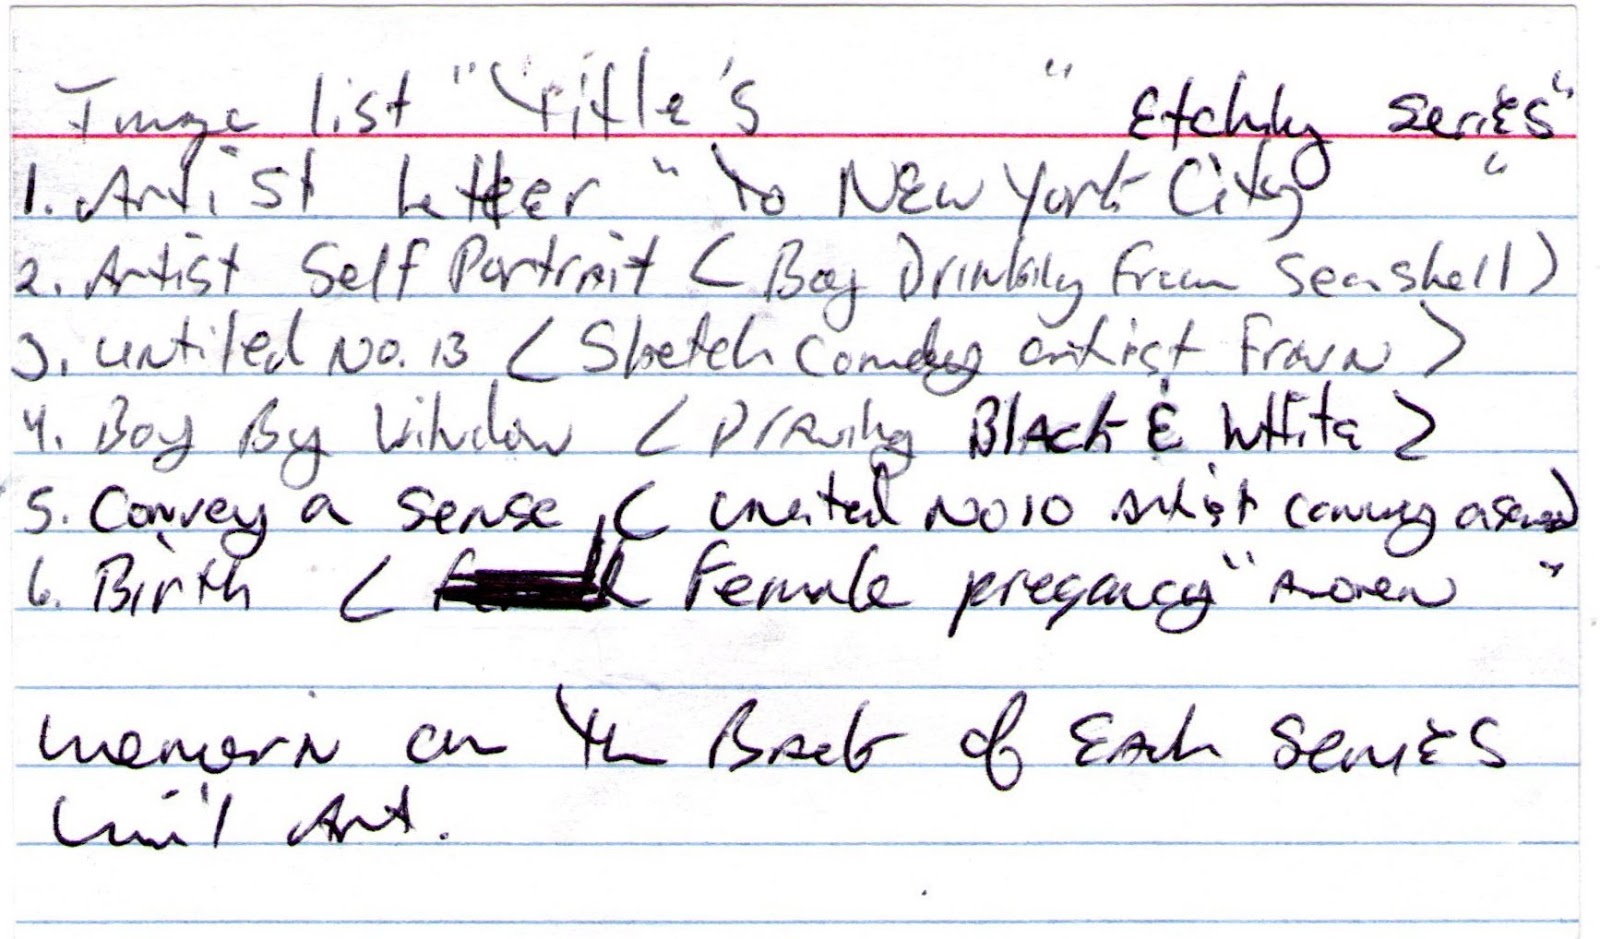 Image list "Title's " Etching Series"
1. Artist Letter "To NEW York City "
2. Artist Self Portrait ( Boy Drinking From Seashell )
3. untiled No. 13 ( Sketch Comdey artist )
4. Boy By Window ( Drawing Black & White )
5. Convey a sense ( No 10 Artist convey a sense )
6. Birth ( Female " "
on The Back of Each Series
Art.